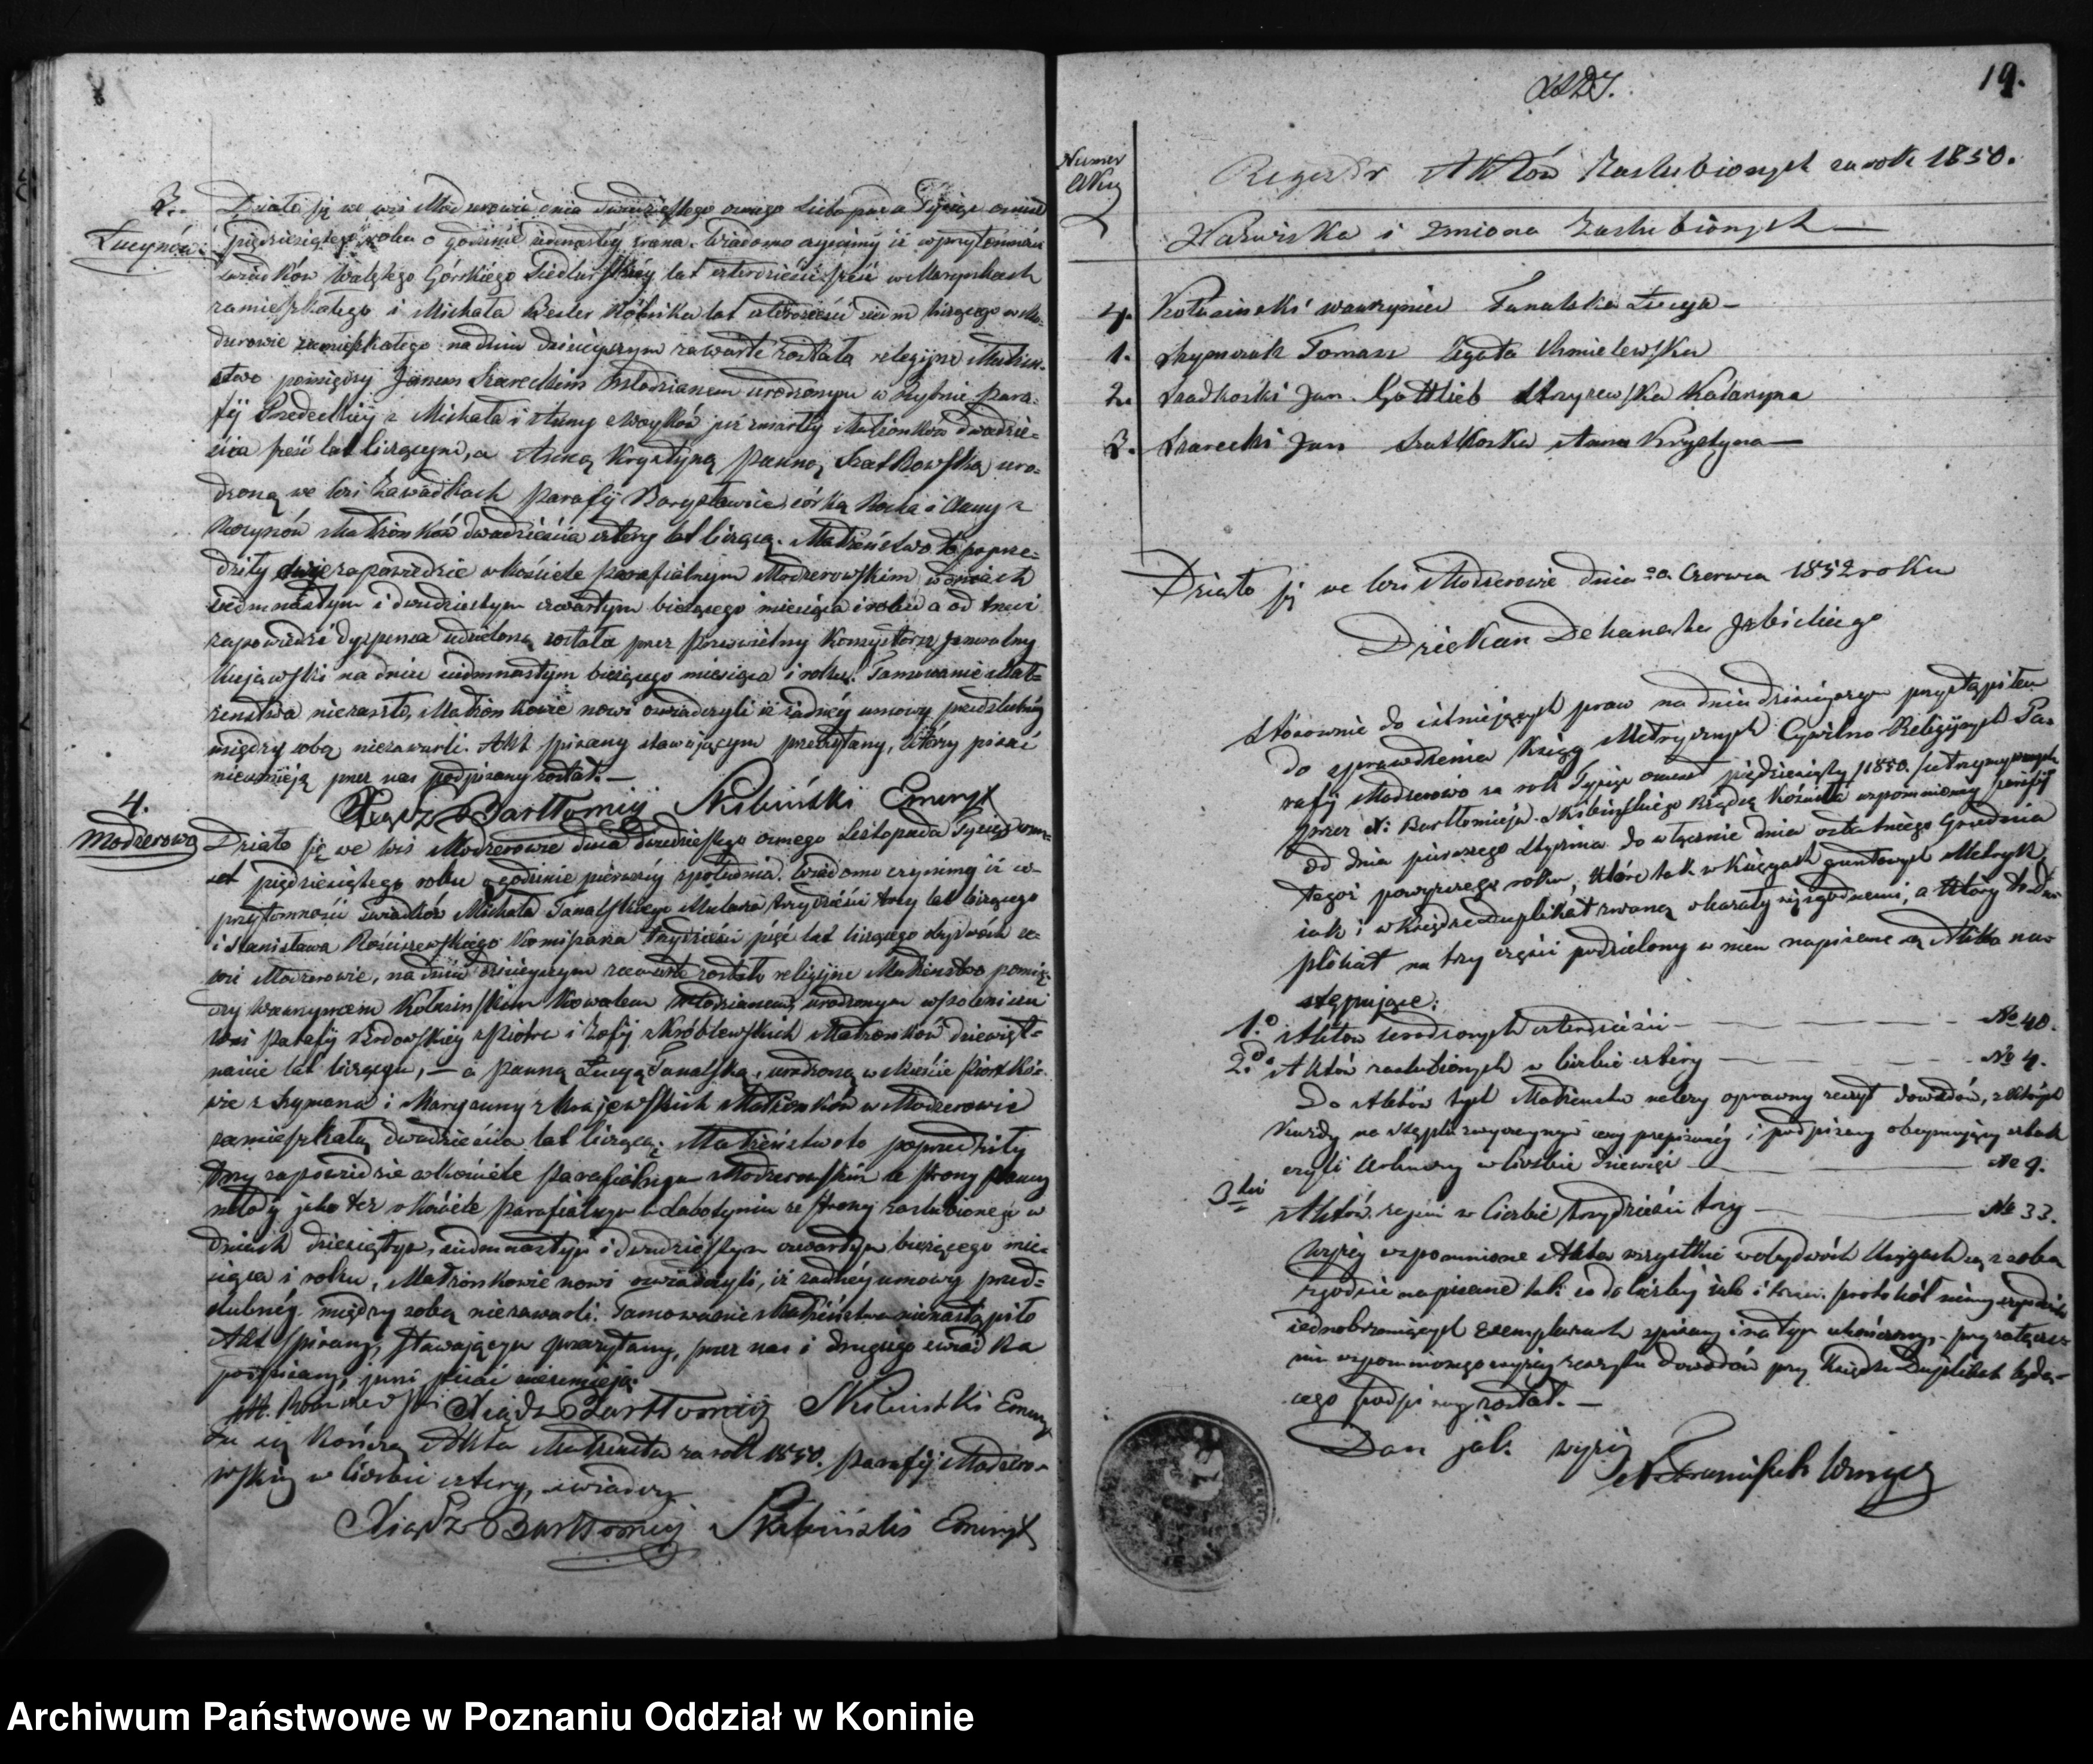 3.
Lucynów
Działo się we wsi Modzerowie dnia dwudziestego osmego Listopada Tysiąc osmset
pięćdziesiątego roku o godzinie jedenastej zrana. Wiadomo czynimy iż w przytomności
świadków Walętego Górskiego lat czterdzieści sześć w
zamieszkałego i Michała Bester lat czterdzieści siedm liczącego w Mo-
dzerowie zamieszkałego na dniu dzisiejszym zawarte zostało religijne Małżeń-
stwo pomiędzy Janem Szareckim Młodzianem urodzonym w Para-
fij z Michała i Anny już zmarłych Małżonków dwadzie-
ścia sześć lat liczącym, a Anną Krystyną Panną Szatkowską uro-
dzoną we wsi Zawadkach Parafij córką i Anny z
Małżonków dwadzieścia cztery lat liczącą. Małżeństwo to poprze-
dziły dwie zapowiedzie w Kościele Parafialnym Modzerowskim w dniach
siedmnastym i dwudziestym czwartym bieżącego miesiąca i roku a od trzeci
zapowiedzi dyspensa udzielona została przez Prześwietny Konsystorz Jeneralny
Kujawski na dniu siedmnastym bieżącego miesiąca i roku. Tamowanie Mał-
żeństwa niezaszło, Małżonkowie nowi oświadczyli iż żadnéy umowy przedślubnéj
między sobą niezawarli. Akt spisany stawającym przeczytany, który pisać
nieumieją przez nas podpisany został. —
Xiądz Bartłomiéj Skibiński Emeryt
4.
Modzerowo
Działo się we wsi Modzerowie dnia dwudziestego osmego Listopada Tysiąc osm-
set pięćdziesiątego roku o godzinie pierwszej z południa. Wiadomo czynimy iż w
przytomności świadków Michała Tanalskiego Mularza trzydzieści trzy lat liczącego
i Stanisława Rościszewskiego trzydzieści pięć lat liczącego obydwóch ze
wsi Modzerowie, na dniu dzisiejszym zawarte zostało religijne Małżeństwo pomię-
dzy Wawrzyncem Kołacinskim Kowalem Młodzianem, urodzonym
wsi Parafij z Piotra i Zofij Małżonków dziewięt-
naście lat liczącym, — a Panną Łucyą Tanalską, urodzoną w Mieście
z Szymona i Maryanny z Krajewskich Małżonków w Modzerowie
zamieszkałą dwadzieścia lat liczącą. Małżeństwo to poprzedziły
trzy zapowiedzie w Kościele Parafialnym Modzerowskim ze strony Panny
młodéj jako też w Kościele Parafialnym w ze strony zaślubionego w
dniach dziesiątym, siedmnastym i dwudziestym czwartym bieżącego mie-
siąca i roku, Małżonkowie nowi oświadczyli, iż żadnéj umowy przed-
ślubnéj między sobą niezawarli. Tamowanie Małżeństwa nienastąpiło
Akt spisany, stawającym przeczytany, przez nas i drugiego świadka
podpisany, jinni pisać nieumieją.
Xiądz Bartłomiéj Skibiński Emeryt
Tu się kończą Akta Małżeństw za rok 1850. Parafij Modzero-
wskiéj w liczbie cztery, świadczy
Xiądz Bartłomiéj Skibiński Emeryt
19.
Numer
Aktu
Regestr Aktów Zaślubionych za rok 1850.
Nazwiska i Imiona Zaślubionych —
4. Kołacinski Wawrzyniec Tanalska Łucya —
1. Szymczak Tomasz Agata Chmielewska
2. Jan Gottlieb Katarzyna
3. Szarecki Jan Szatkoska Anna Krystyna —
Działo się we wsi Modzerowie dnia 20 Czerwca 1852 roku
Dziekan Dekanatu Izbickiego
Stósownie do istniejących praw na dniu dzisiejszym przystąpiłem
do sprawdzenia Ksiąg Metrycznych Cywilno-Religijnych Pa-
rafij Modzerowo za rok Tysiąc osmset pięćdziesiąty /1850./ utrzymywanych
przez X: Bartłomieja Skibińskiego Rządcę Kościoła wspomnionéj parafij
od dnia pierwszego Stycznia do włącznie dnia ostatniego Grudnia
tegoż powyższego roku, które tak w Księgach gruntowych Metryk
jak i w Księdze duplikat zwaną okazały się zgodnemi, a który to Du-
plikat na trzy części podzielony w nim napisane są Akta na-
stępujące:
1.o Aktów urodzonych czterdzieści — No 40.
2.do Aktów zaślubionych w liczbie cztery — No 4.
Do Aktów tych Małżeństw należy oprawny zeszyt dowodów, z których
każdy na stęplu zwyczajnéj ceny przepisanéj i podpisany obejmujący sztuk
czyli w liczbie dziewięć — No 9.
3.tcie Aktów zejść w liczbie trzydzieści trzy — No 33.
Wyżéj wspomnione Akta wszystkie w obydwóch Księgach są z sobą
zgodnie napisane tak co do liczby jak i treści. protokół niniejszy w
jednobrzmiących exemplarzach spisany i na tym ukończony, przy załącze-
niu wspomnionego wyżéj zeszytu dowodów przy Księdze Duplikat będą-
cego podpisany został. —
Dan jak wyżéj
X Franciszek
Archiwum Państwowe w Poznaniu Oddział w Koninie